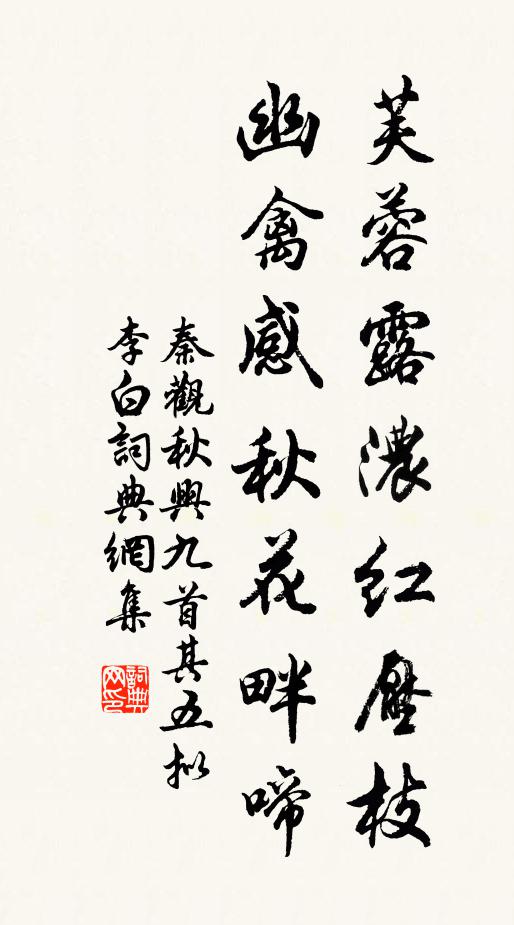 芙蓉露濃紅壓枝
幽禽感秋花畔啼
秦觀秋興九首其五拟
李白詞典網集
詞典网印